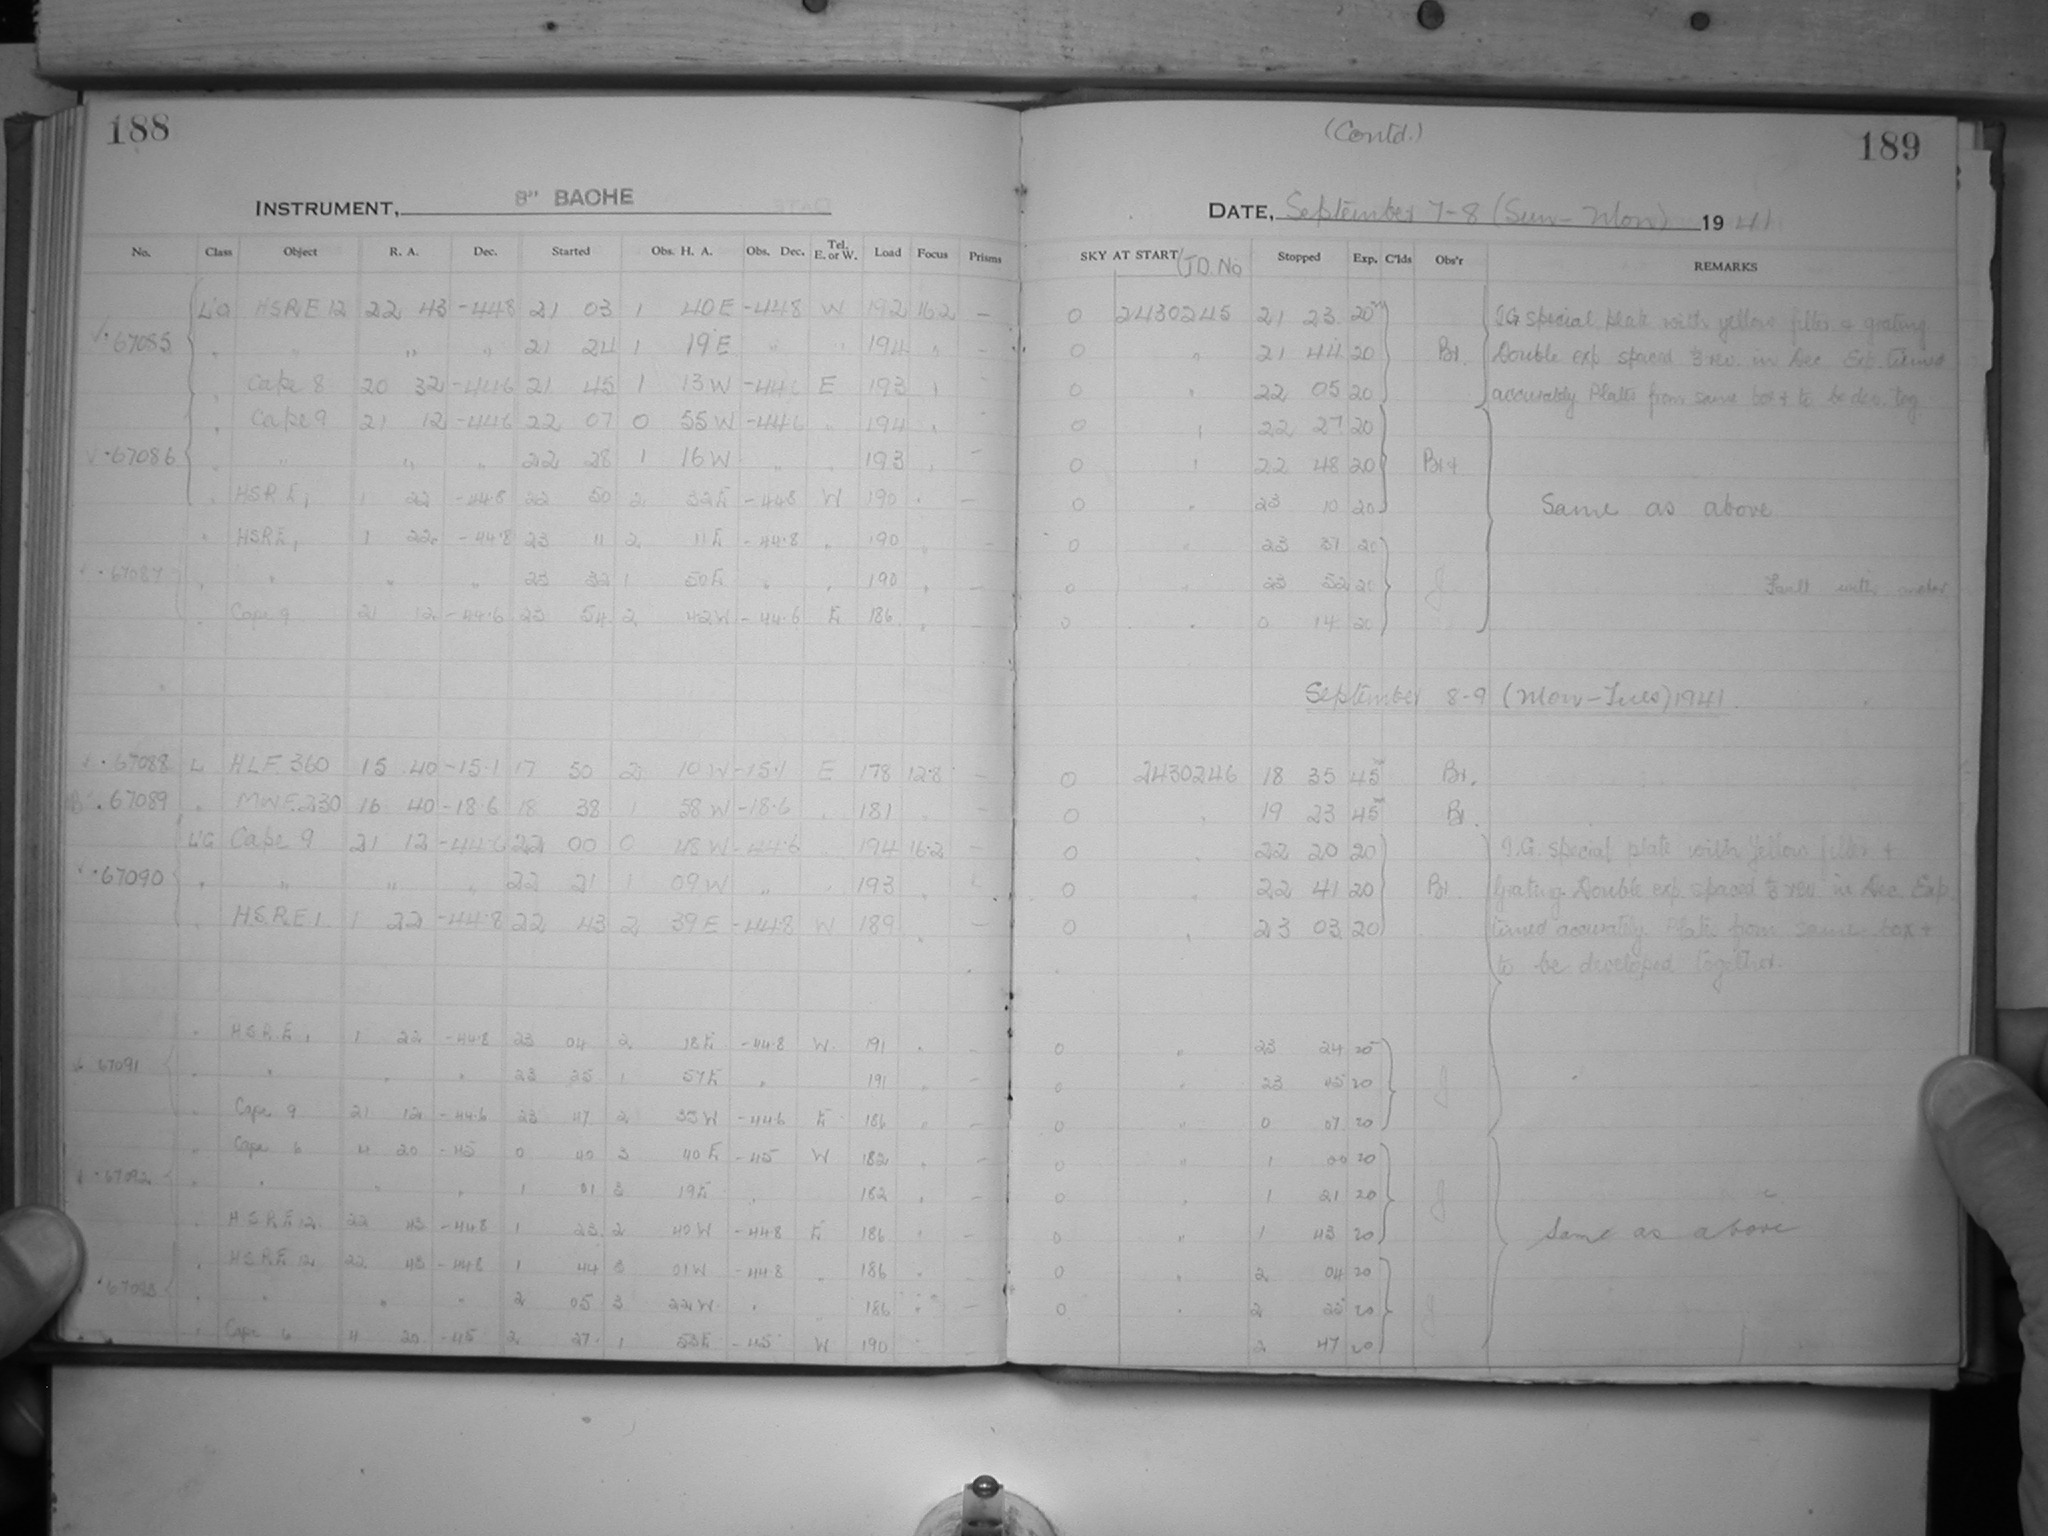 188
INSTRUMENT, 8" BACHE
No. Class Object R. A. Dec. Started Obs. H. A. Obs. Dec. Tel. E. or W. Load Focus Prisms
L'G HSR.E 12 22 43 -44.8 21 03 1 40 E -44.8 W 192 16.2 –
67085 " " " " 21 24 1 19 E " " 194 " –
" Cape 8 20 32 -44.6 21 45 1 13 W -44.6 E 193 "
" Cape 9 21 12 -44.6 22 07 0 55 W -44.6 " 194 "
67086 " " " " 22 28 1 16 W " " 193 " –
" HSR.E 1 1 22 -44.8 22 50 2 32 E -44.8 W 190 " –
" HSR.E 1 1 22 -44.8 23 11 2 11 E -44.8 " 190 " –
67087 " " " " 23 32 1 50 E " " 190 " –
" Cape 9 21 12 -44.6 23 54 2 42 W -44.6 E 186 " –
67088 L HLF. 360 15 40 -15.1 17 50 2 10 W -15.1 E 178 12.8 –
67089 " MWF. 230 16 40 -18.6 18 38 1 58 W -18.6 " 181 " –
L'G Cape 9 21 12 -44.6 22 00 0 48 W -44.6 " 194 16.2 –
67090 " " " " 22 21 1 09 W " " 193 "
" HSR.E 1 1 22 -44.8 22 43 2 39 E -44.8 W 189 " –
" HSR.E 1 1 22 -44.8 23 04 2 18 E -44.8 W 191 " –
67091 " " " " 23 25 1 57 E " 191 " –
" Cape 9 21 12 -44.6 23 47 2 35 W -44.6 E 186 " –
" Cape 6 4 20 -45 0 40 3 40 E -45 W 182 " –
67092 " " " " 1 01 3 19 E " 182 "
" HSR.E 12 22 43 -44.8 1 23 2 40 W -44.8 E 186 " –
" HSR.E 12 22 43 -44.8 1 44 3 01 W -44.8 " 186 "
67093 " " " " 2 05 3 22 W " 186 " –
" Cape 6 4 20 -45 2 27 1 53 E -45 W 190 –
(Contd.) 189
DATE, September 7-8 (Sun-Mon) 1941
SKY AT START JD. No Stopped Exp. C'lds Obs'r REMARKS
0 2430245 21 23 20m I.G special plate with yellow filter & grating
0 " 21 44 20 Br. Double exp spaced ⅓ rev. in Dec Exp timed
0 " 22 05 20 accurately Plates from same box & to be dev. tog
0 " 22 27 20
0 " 22 48 20
0 " 23 10 20 Same as above
0 " 23 31 20
0 " 23 52 20 J Fault with
0 " 0 14 20
September 8-9 (Mon-Tues) 1941
0 2430246 18 35 45m Br.
0 " 19 23 45m Br.
0 " 22 20 20 I.G. special plate with yellow filter &
0 " 22 41 20 Br. Grating. Double exp. spaced ⅓ rev. in Dec. Exp.
0 " 23 03 20 timed accurately. Plate from same box &
to be developed together.
0 " 23 24 20
0 " 23 45 20 J
0 " 0 07 20
0 " 1 00 20
0 " 1 21 20 J
0 " 1 43 20 Same as above
0 " 2 04 20
0 " 2 25 20 J
2 47 20